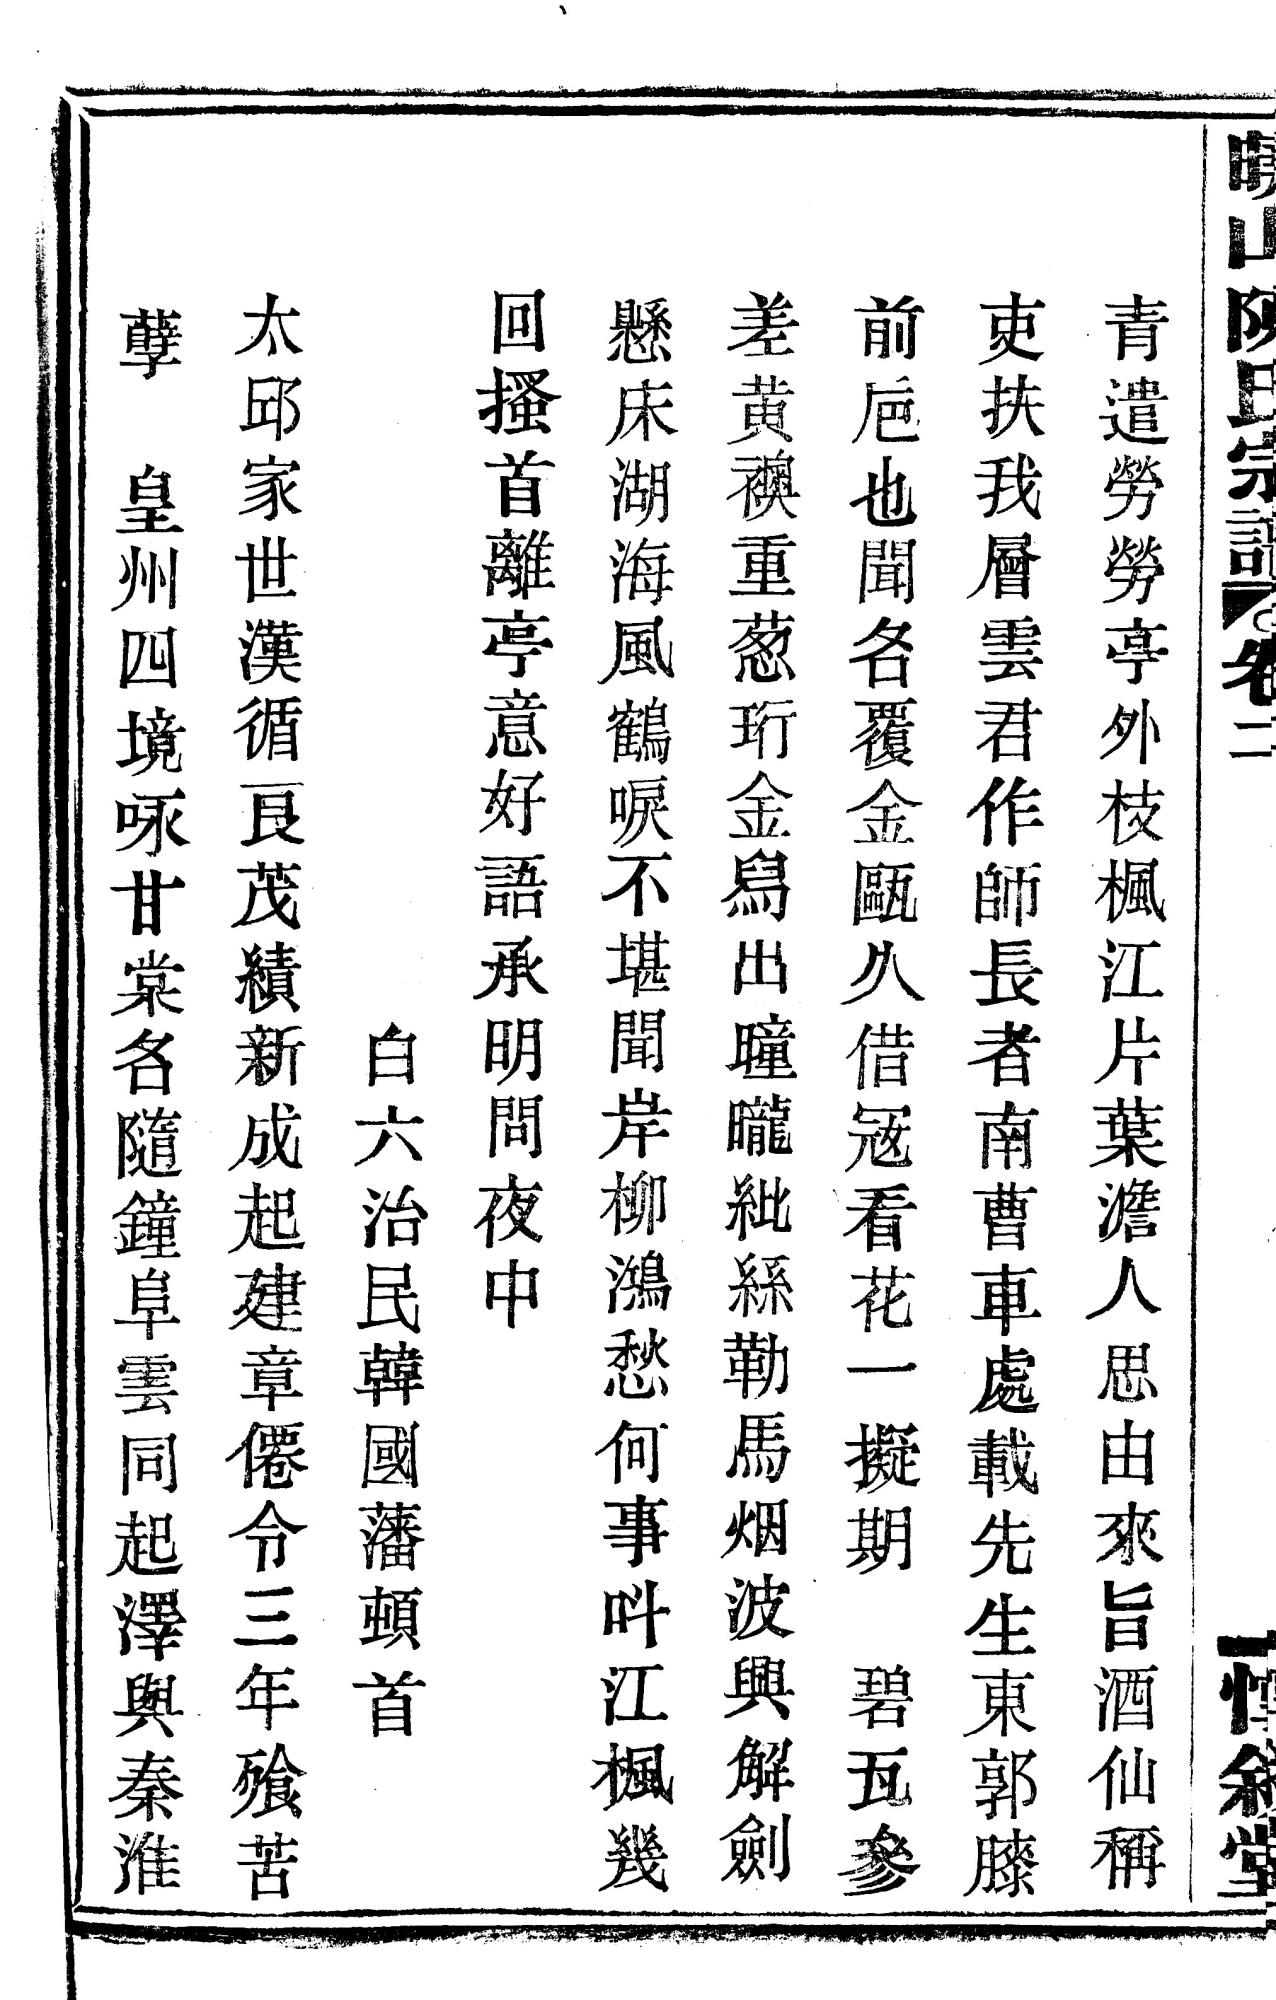 山陳氏宗譜 卷二 惇敘堂
青遣勞勞亭外枝楓江片葉澹人思由來旨酒仙稱
吏扶我層雲君作師長者南曹車處載先生東郭膝
前巵也聞名覆金甌久借冦看花一擬期　碧瓦參
差黃襖重葱珩金舄出曈曨紕絲勒馬烟波興解劍
懸床湖海風鶴唳不堪聞岸柳鴻愁何事吽江楓幾
回搔首離亭意好語承明問夜中
白六治民韓國藩頓首
太邱家世漢循良茂績新成起建章僊令三年飱苦
孽　皇州四境咏甘棠名隨鐘阜雲同起澤與秦淮